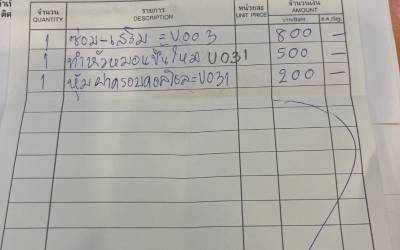 จำนวน รายการ หน่วยละ จำนวนเงิน
QUANTITY DESCRIPTION UNIT PRICE AMOUNT
บาท/Baht ส.ต./Stg.
1 ซ่อม-เสริม = V.003 800 —
1 ทำหัวหมอนขึ้นใหม่ V031 500 —
1 หุ้มฝาครอบคอ = V031 200 —